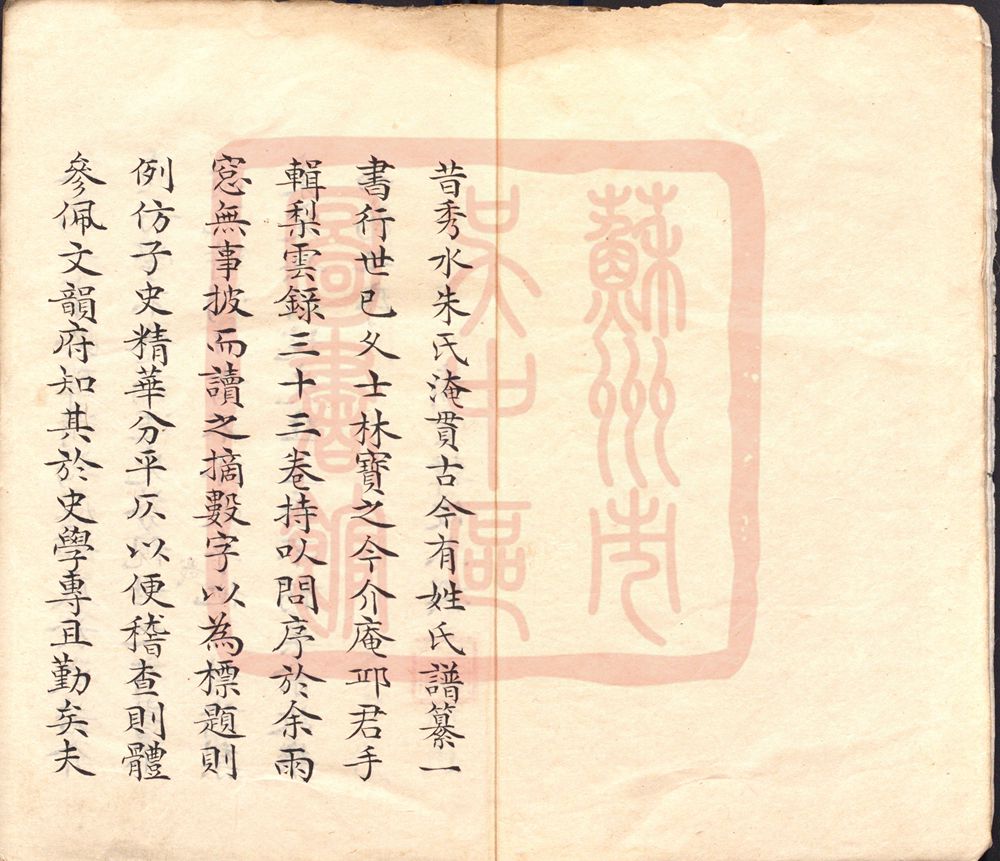 昔秀水朱氏淹貫古今有姓氏譜纂一
書行世已久士林寶之今介庵邛君手
輯梨雲錄三十三卷持以問序於余雨
窓無事披而讀之摘數字以為標題則
例仿子史精華分平仄以便稽查則體
參佩文韻府知其於史學專且勤矣夫
蘇州市
吳中區
圖書館